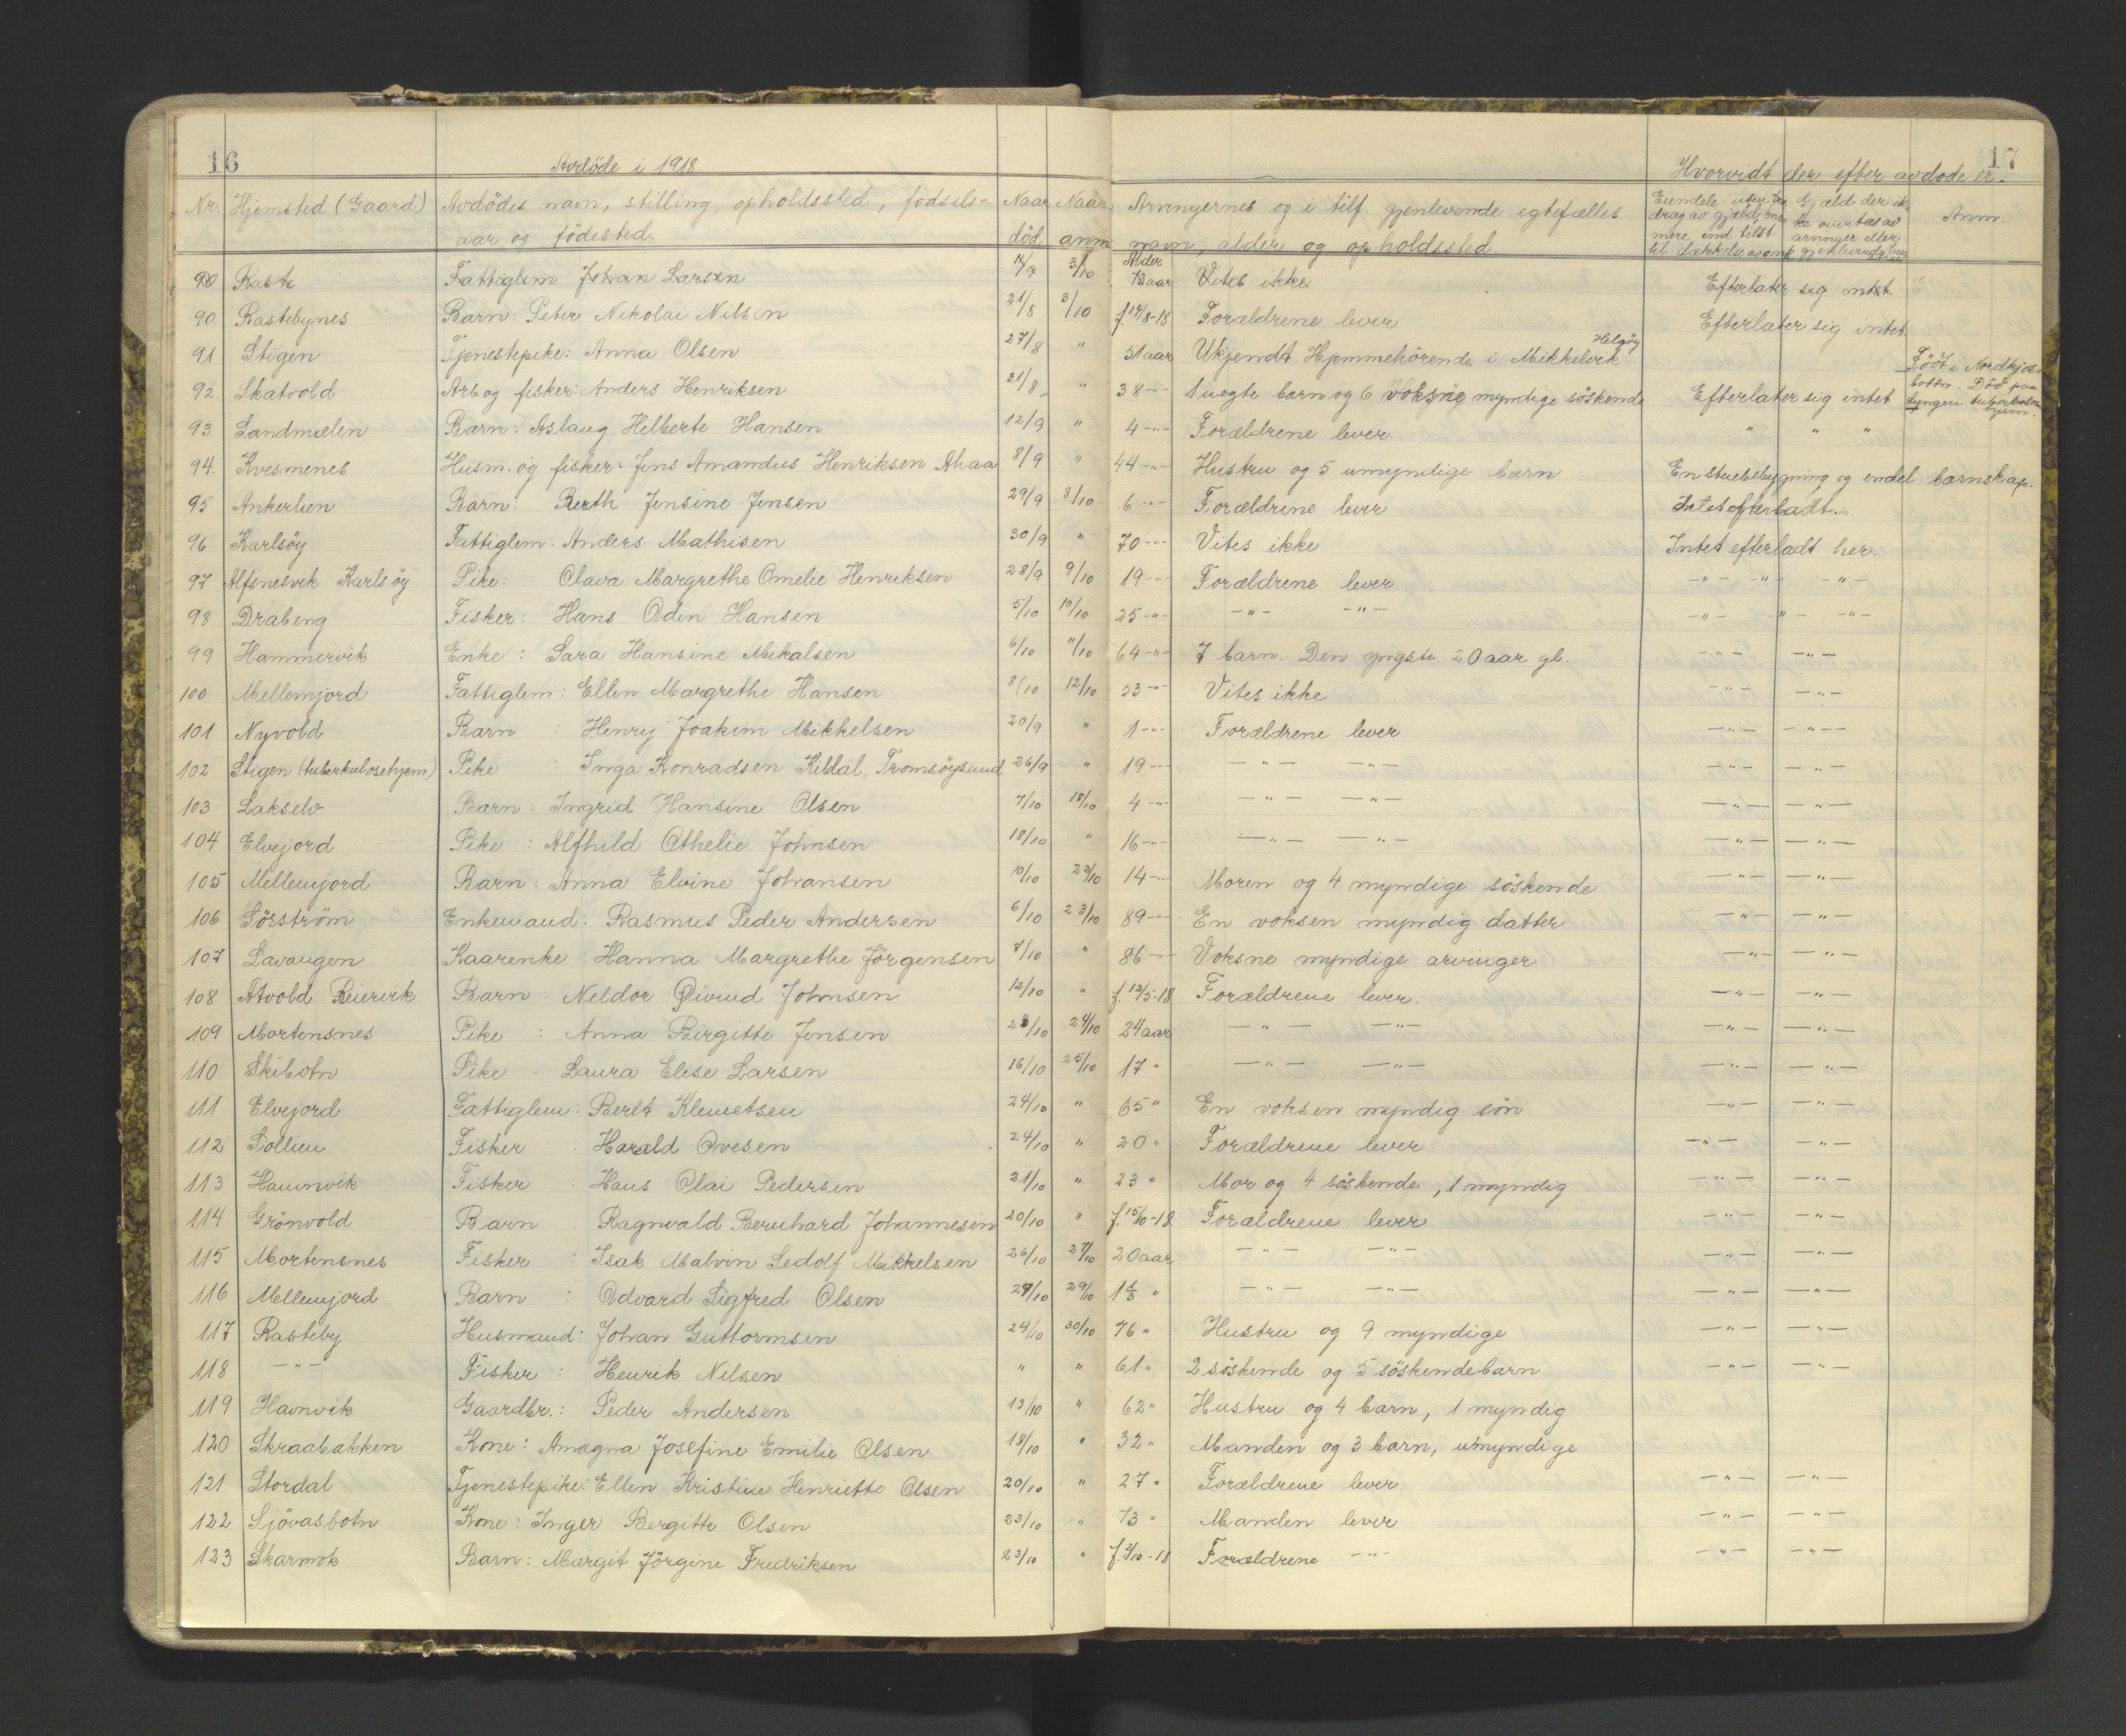 16
17
Avdöde i 1918.
Hvorvidt der efter avdöde er.
Nr. Hjemsted (Gaard) Avdödes navn, stilling, opholdssted, födsels- Naar Naar Arvingernes og i tilf. gjenlevende egtefælles Anm.
aar og födested. död anm navn, alder og opholdssted
Eiendele uten fra Gjæld der ik-
drag av gjæld, mer ke overtas av
mere end tilst arvinger eller
til dækkelse av omk gjenlevende
Alder
90 Raste Fattiglem Johan Larsen 3/10 aar Vites ikke Efterlater sig intet.
90 Rastebynes Barn: Peter Nikolai Nilsen 21/8 3/10 f. 14/8-18 Forældrene lever Efterlater sig intet
91 Stigen Tjenestepike: Anna Olsen 27/8 " 51 aar Ukjendt. Hjemmehörende i Mikkelvik Helgöy
92 Skatvold Arb og fisker: Anders Henriksen 21/8 " 38 -"- 1 uegte barn og 6 voksne myndige söskende Efterlater sig intet Född i Nordkjos-
botn. Död paa
Lyngen tuberkulose
hjem.
93 Sandmælen Barn: Aslaug Hilberte Hansen 12/9 " 4 -"- Forældrene lever. " " "
94. Kvesmenes Husm. og fisker: Jens Amandus Henriksen Ahaa 8/9 " 44 -"- Hustru og 5 umyndige barn En stuebebygning og endel barnskap.
95 Ankerlien Barn: Berth Jensine Jensen 29/9 8/10 6 -"- Forældrene lever Intet efterladt.
96 Karlsöy Fattiglem: Anders Mathisen 30/9 " 70 -"- Vites ikke Intet efterladt her.
97 Alfsnesvik Karlsöy Pike: Olava Margrethe Omelie Henriksen 28/9 9/10 19 -"- Forældrene lever -"- -"- -"-
98 Drabeng Fisker: Hans Odin Hansen 5/10 10/10 25 -"- -"- -"- -"- -"- -"-
99 Hammervik Enke: Sara Hansine Mikalsen 6/10 11/10 64 -"- 7 barn. Den yngste 20 aar gl. -"- -"-
100 Mellemjord Fattiglem: Ellen Margrethe Hansen 8/10 12/10 53 -"- Vites ikke -"- -"-
101 Nyvold Barn : Henry Joakim Mikkelsen 20/9 " 1 -"- Forældrene lever -"- -"-
102 Stigen (tuberkulosehjem) Pike : Inga Konradsen Kildal, Tromsöysund 26/9 " 19 -"- -"- -"- -"- -"-
103 Lakselv Barn: Ingrid Hansine Olsen 7/10 18/10 4 -"- -"- -"- -"- -"-
104 Elvejord Pike : Alfhild Othelie Johnsen 18/10 " 16 -"- -"- -"- -"- -"-
105 Mellemjord Barn: Anna Elvine Johansen 10/10 23/10 14 -"- Moren og 4 myndige söskende -"- -"-
106 Sörström Enkemand: Rasmus Peder Andersen 6/10 23/10 89 -"- En voksen myndig datter -"- -"-
107 Lavangen Kaarenke Hanna Margrethe Jörgensen 7/10 " 86 -"- Voksne myndige arvinger -"- -"-
108 Atvold Reiervik Barn : Neldor Öivind Johnsen 12/10 " f. 12/5-18 Forældrene lever. -"- -"-
109 Mortensnes Pike : Anna Birgitte Jensen 23/10 24/10 24 aar -"- -"- -"- -"-
110 Skibotn Pike : Laura Elise Larsen 16/10 25/10 17 " -"- -"- -"- -"-
111 Elvejord Fattiglem: Berit Klemetsen 24/10 " 65 " En voksen myndig sön -"- -"-
112 Sollien Fisker : Harald Ovesen 24/10 " 20 " Forældrene lever -"- -"-
113 Havnvik Fisker : Hans Olai Pedersen 21/10 " 23 " Mor og 4 söskende, 1 myndig -"- -"-
114 Grönvold Barn : Ragnvald Bernhard Johannesen 20/10 " f. 15/10-18 Forældrene lever -"- -"-
115 Mortensnes Fisker : Isak Malvin Sedolf Mikkelsen 26/10 27/10 20 aar -"- -"- -"- -"-
116 Mellemjord Barn : Odvard Sigfred Olsen 27/10 29/10 1 1/3 " -"- -"- -"- -"-
117 Rasteby Husmand: Johan Guttormsen 24/10 30/10 76 " Hustru og 9 myndige -"- -"-
118 -"- Fisker : Henrik Nilsen " " 61 " 2 söskende og 5 söskendebarn -"- -"-
119 Havnvik Gaardbr.: Peder Andersen 13/10 " 62 " Hustru og 4 barn, 1 myndig
120 Skraabakken Kone: Amagna Josefine Emilie Olsen 18/10 " 32 " Manden og 3 barn, umyndige
121 Stordal Tjenestepike: Ellen Kristine Henriette Olsen 20/10 " 27 " Forældrene lever -"- -"-
122 Sjövasbotn Kone: Inger Bergitte Olsen 23/10 " 73 " Manden lever -"- -"-
123 Skarmok Barn: Margit Jörgine Fredriksen 23/10 " f. 2/10-18 Forældrene -"- -"- -"-